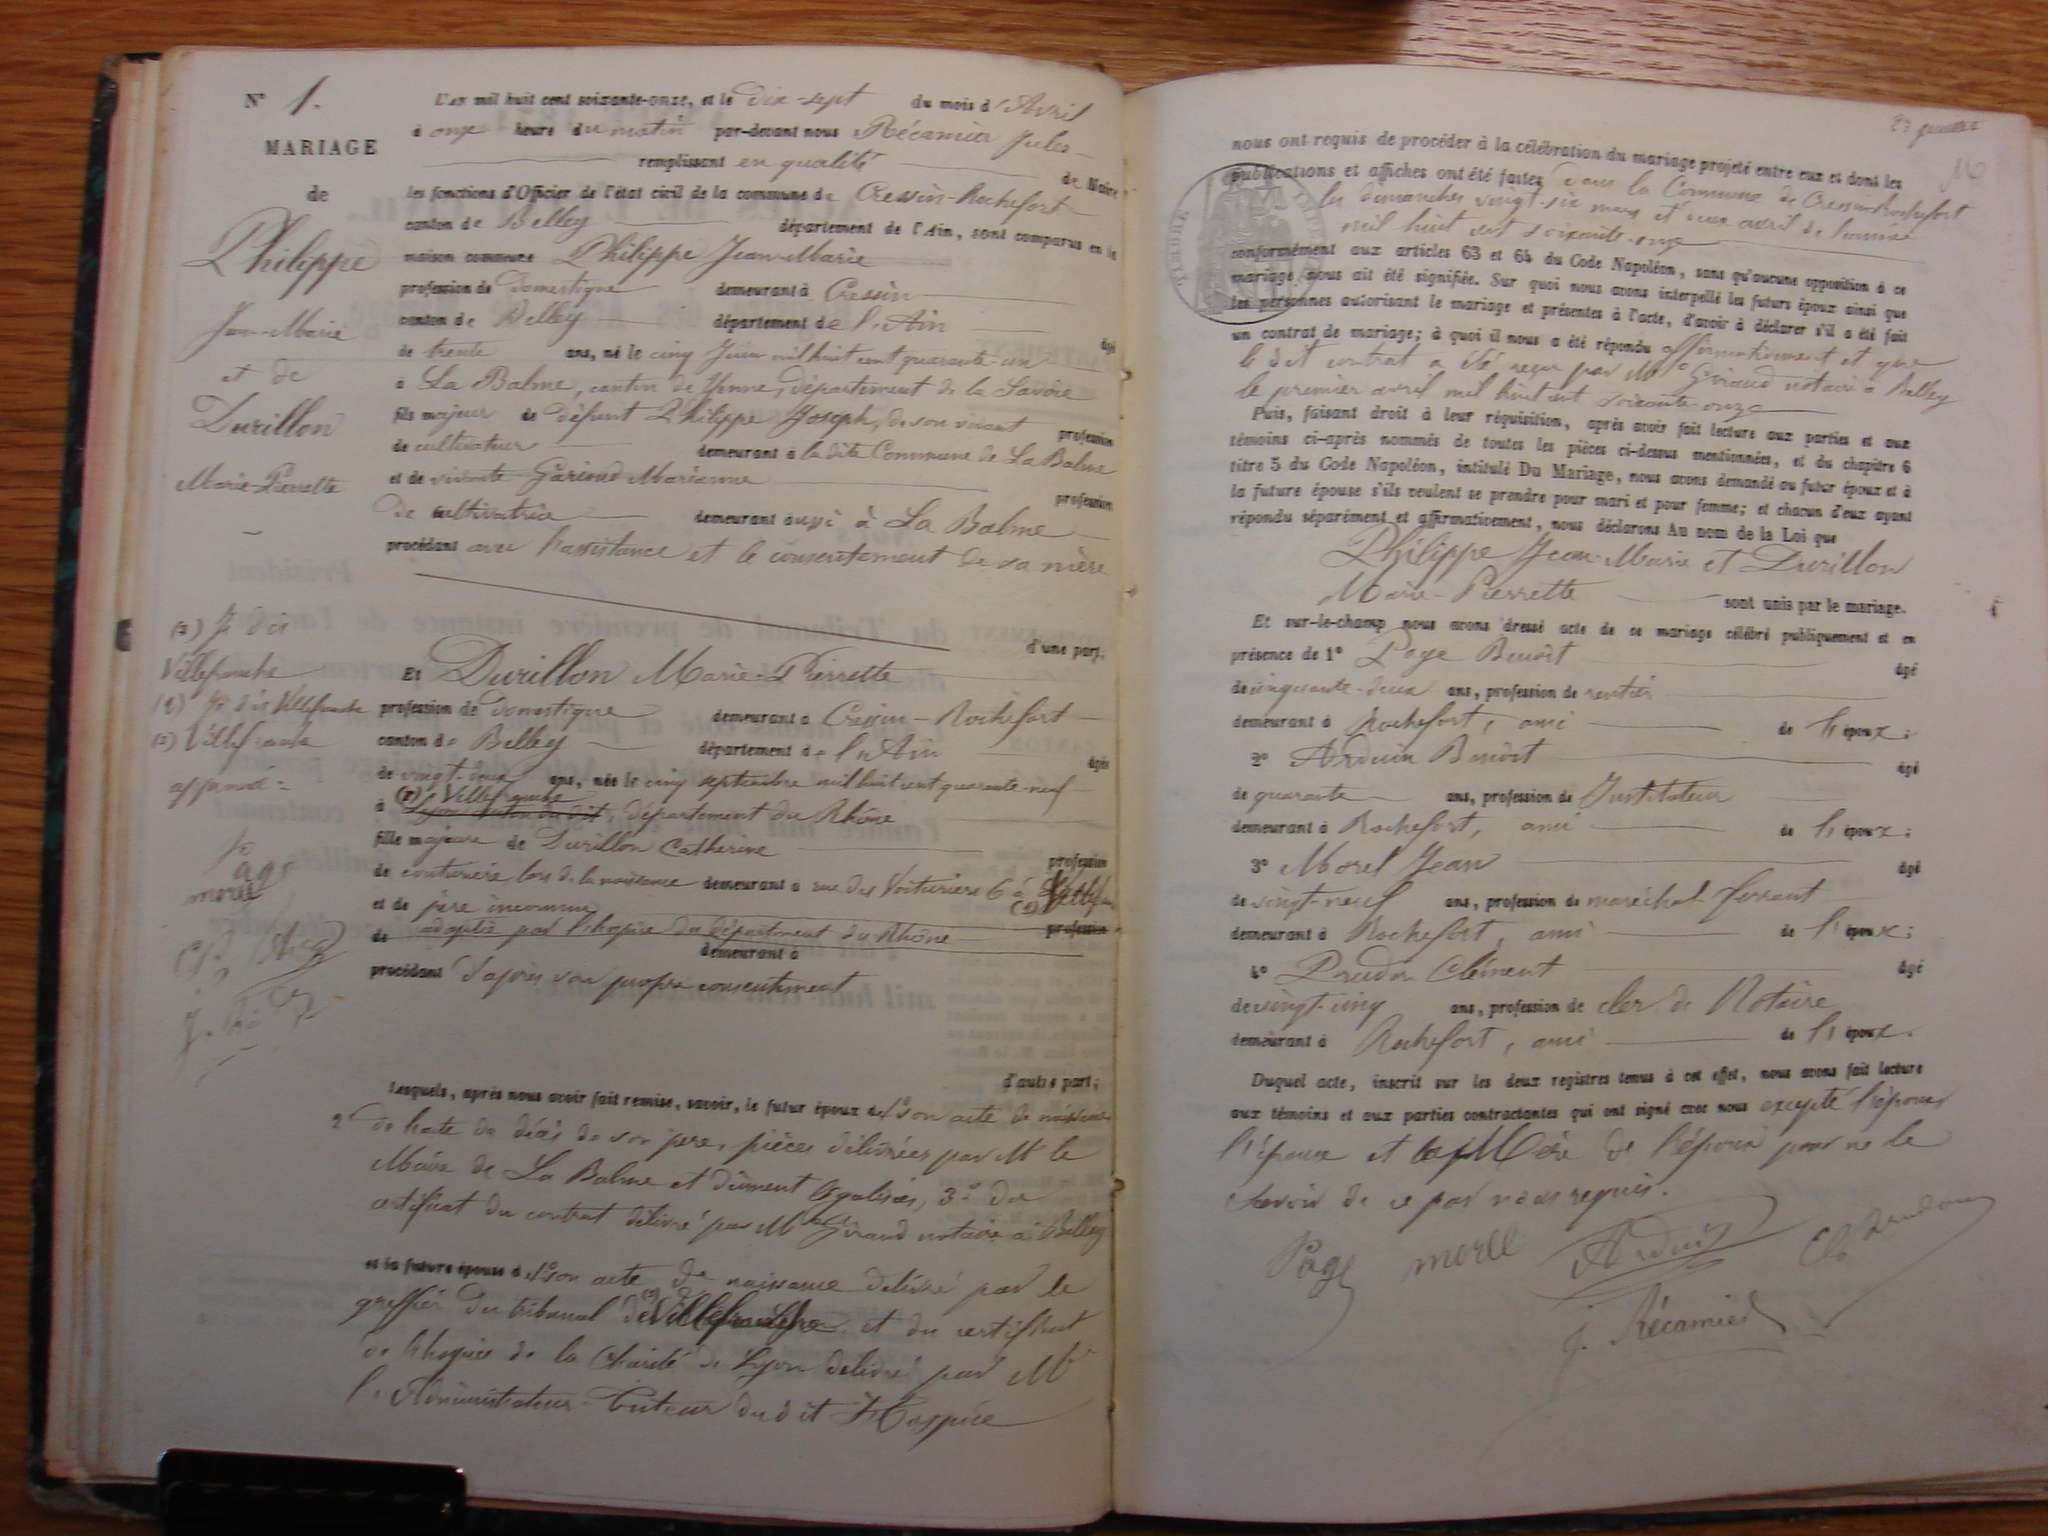 N° 1.
MARIAGE
de
Philippe
Jean-Marie
et de
Durillon
Marie-Pierrette
L'an mil huit cent soixante-onze, et le dix-sept du mois d'Avril
à onze heure du matin par-devant nous Récamier Jules
remplissant en qualité de Maire
les fonctions d'Officier de l'état civil de la commune de Cressin-Rochefort
canton de Belley département de l'Ain, sont comparus en la
maison commune Philippe Jean-Marie
profession de domestique demeurant à Cressin
canton de Belley département de l'Ain âgé
de trente ans, né le cinq Juin mil huit cent quarante-un
à La Balme, canton de Yenne, département de la Savoie
fils majeur de défunt Philippe Joseph, de son vivant profession
de cultivateur demeurant à la dite Commune de La Balme
et de vivante Garioud Marianne profession
de cultivatrice demeurant aussi à La Balme
procédant avec l'assistance et le consentement de sa mère
d'une part,
(3) Je dis
Villefranche
(1) Je dis Villefranche
(2) Villefranche
approuvé
Page
morel
Et Durillon Marie-Pierrette
profession de domestique demeurant à Cressin-Rochefort
canton de Belley département de l'Ain âgée
de vingt-deux ans, née le cinq septembre mil huit cent quarante-neuf
(1) Villefranche
à Lyon canton du dit, département du Rhône
fille majeure de Durillon Catherine profession
de couturière lors de la naissance demeurant à rue des Voituriers 6 à
et de père inconnu (2)
de adoptée par l'hospice du département du Rhône profession
demeurant à
procédant d'après son propre consentement
d'autre part;
Lesquels, après nous avoir fait remise, savoir, le futur époux de 1° son acte de naissance
2° de l'acte de décès de son père, pièces délivrées par Mr le
Maire de La Balme et dûment légalisées, 3° du
certificat du contrat délivré par Me Giraud notaire à Belley
et la future épouse de 1° son acte de naissance délivré par le
greffier du tribunal de (3) Villefranche et du certificat
de l'hospice de la Charité de Lyon délivré par Mr
l'Administrateur-Tuteur du dit Hospice
nous ont requis de procéder à la célébration du mariage projeté entre eux et dont les
publications et affiches ont été faites dans la Commune de Cressin-Rochefort
les dimanches vingt-six mars et deux avril de l'année
mil huit cent soixante-onze
conformément aux articles 63 et 64 du Code Napoléon, sans qu'aucune opposition à ce
mariage nous ait été signifiée. Sur quoi nous avons interpellé les futurs époux ainsi que
les personnes autorisant le mariage et présentes à l'acte, d'avoir à déclarer s'il a été fait
un contrat de mariage; à quoi il nous a été répondu affirmativement et que
le dit contrat a été reçu par Me Giraud notaire à Belley
le premier avril mil huit cent soixante-onze
Puis, faisant droit à leur réquisition, après avoir fait lecture aux parties et aux
témoins ci-après nommés de toutes les pièces ci-dessus mentionnées, et du chapitre 6
titre 5 du Code Napoléon, intitulé Du Mariage, nous avons demandé au futur époux et à
la future épouse s'ils veulent se prendre pour mari et pour femme; et chacun d'eux ayant
répondu séparément et affirmativement, nous déclarons Au nom de la Loi que
Philippe Jean-Marie et Durillon
Marie-Pierrette sont unis par le mariage.
Et sur-le-champ nous avons dressé acte de ce mariage célébré publiquement et en
présence de 1° Page Benoît âgé
de cinquante-deux ans, profession de rentier
demeurant à Rochefort, ami de l'époux;
2° Arduin Benoît âgé
de quarante ans, profession de Instituteur
demeurant à Rochefort, ami de l'époux;
3° Morel Jean âgé
de vingt-neuf ans, profession de maréchal-ferrant
demeurant à Rochefort, ami de l'époux;
4° Prudon Clément âgé
de vingt-cinq ans, profession de clerc de Notaire
demeurant à Rochefort, ami de l'époux.
Duquel acte, inscrit sur les deux registres tenus à cet effet, nous avons fait lecture
aux témoins et aux parties contractantes qui ont signé avec nous excepté l'époux
l'épouse et la Mère de l'époux pour ne le
savoir de ce par nous requis.
Page morel Arduin
J. Récamier